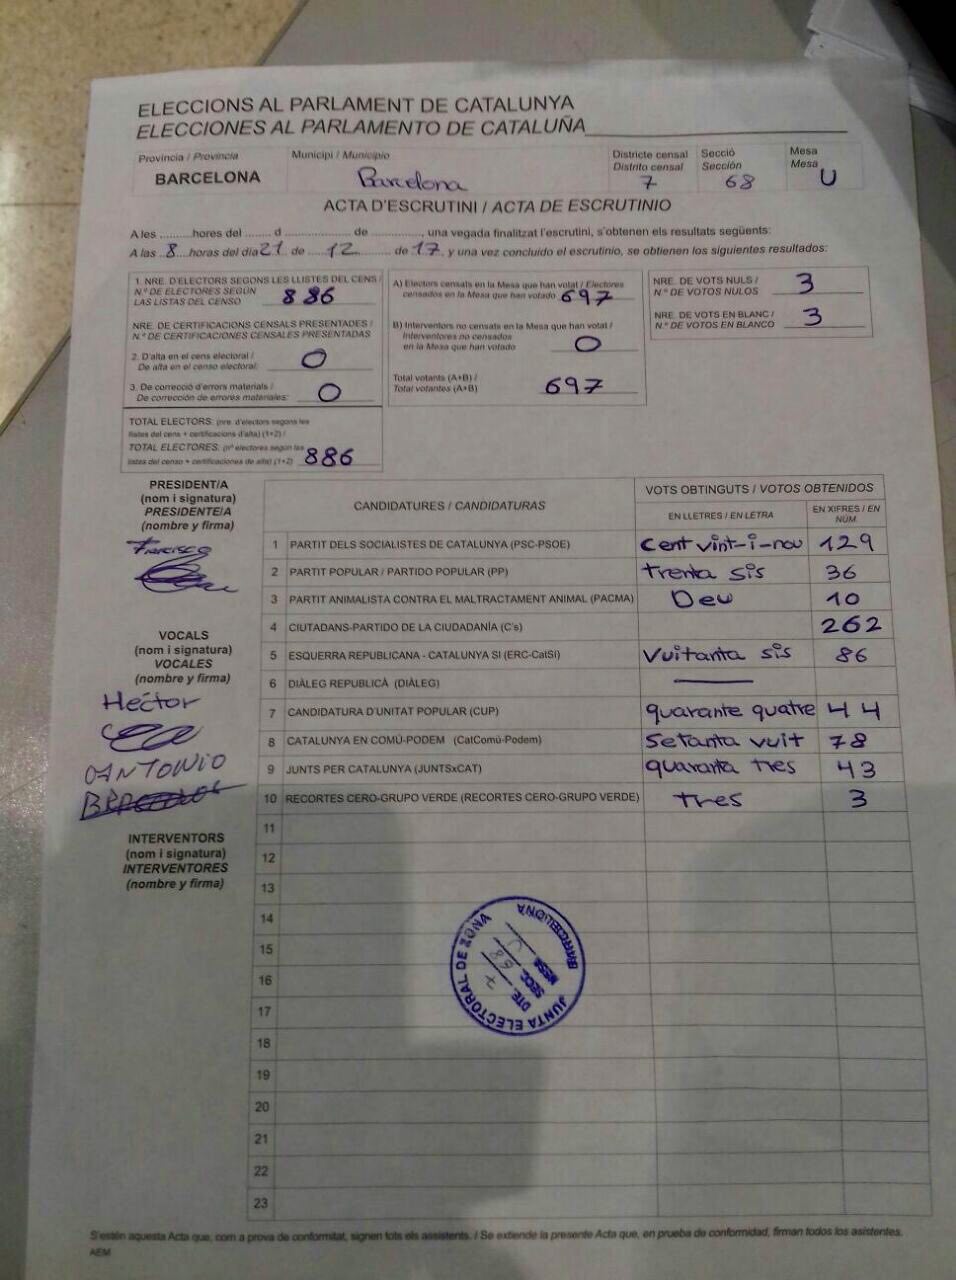 ELECCIONS AL PARLAMENT DE CATALUNYA
ELECCIONES AL PARLAMENTO DE CATALUÑA
Província / Provincia
BARCELONA
Municipi / Municipio
Barcelona
Districte censal
Distrito censal
7
Secció
Sección
68
Mesa
Mesa
U
ACTA D'ESCRUTINI / ACTA DE ESCRUTINIO
A les ..........hores del ....... d .................. de ..............., una vegada finalitzat l'escrutini, s'obtenen els resultats següents:
A las ..8...horas del día 21 de ....12...... de 17, y una vez concluido el escrutinio, se obtienen los siguientes resultados:
1. NRE. D'ELECTORS SEGONS LES LLISTES DEL CENS /
N.º DE ELECTORES SEGÚN
LAS LISTAS DEL CENSO 886
NRE. DE CERTIFICACIONS CENSALS PRESENTADES /
N.º DE CERTIFICACIONES CENSALES PRESENTADAS
2. D'alta en el cens electoral /
De alta en el censo electoral: 0
3. De correcció d'errors materials /
De corrección de errores materiales: 0
TOTAL ELECTORS: (nre. d'electors segons les
llistes del cens + certificacions d'alta) (1+2) /
TOTAL ELECTORES: (nº electores según las
listas del censo + certificaciones de alta) (1+2) 886
A) Electors censats en la Mesa que han votat / Electores
censados en la Mesa que han votado 697
B) Interventors no censats en la Mesa que han votat /
Interventores no censados
en la Mesa que han votado 0
Total votants (A+B) /
Total votantes (A+B) 697
NRE. DE VOTS NULS /
N.º DE VOTOS NULOS 3
NRE. DE VOTS EN BLANC /
N.º DE VOTOS EN BLANCO 3
PRESIDENT/A
(nom i signatura)
PRESIDENTE/A
(nombre y firma)
Francisco
VOCALS
(nom i signatura)
VOCALES
(nombre y firma)
Hector
ANTONIO
INTERVENTORS
(nom i signatura)
INTERVENTORES
(nombre y firma)
CANDIDATURES / CANDIDATURAS
VOTS OBTINGUTS / VOTOS OBTENIDOS
EN LLETRES / EN LETRA
EN XIFRES / EN NÚM.
1 PARTIT DELS SOCIALISTES DE CATALUNYA (PSC-PSOE) Cent vint-i-nou 129
2 PARTIT POPULAR / PARTIDO POPULAR (PP) trenta sis 36
3 PARTIT ANIMALISTA CONTRA EL MALTRACTAMENT ANIMAL (PACMA) Deu 10
4 CIUTADANS-PARTIDO DE LA CIUDADANÍA (C's) 262
5 ESQUERRA REPUBLICANA - CATALUNYA SÍ (ERC-CatSí) Vuitanta sis 86
6 DIÀLEG REPUBLICÀ (DIÀLEG)
7 CANDIDATURA D'UNITAT POPULAR (CUP) quarante quatre 44
8 CATALUNYA EN COMÚ-PODEM (CatComú-Podem) Setanta vuit 78
9 JUNTS PER CATALUNYA (JUNTSxCAT) quaranta tres 43
10 RECORTES CERO-GRUPO VERDE (RECORTES CERO-GRUPO VERDE) tres 3
11
12
13
14
15
16
17
18
19
20
21
22
23
JUNTA ELECTORAL DE ZONA
BARCELONA
DTE. 7
SECC. 68
MESA U
S'estén aquesta Acta que, com a prova de conformitat, signen tots els assistents. / Se extiende la presente Acta que, en prueba de conformidad, firman todos los asistentes.
AEM